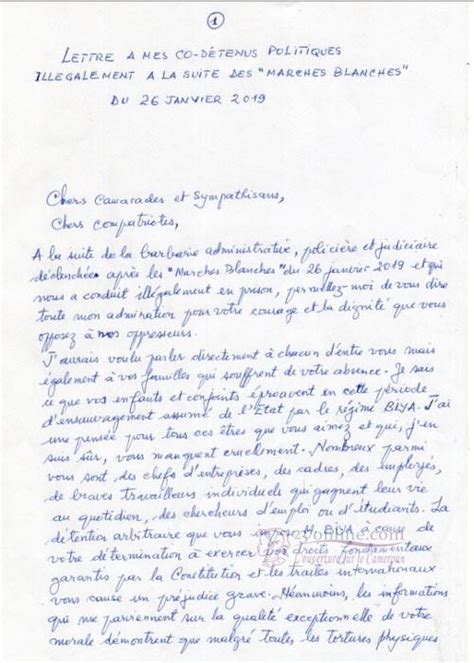 1
LETTRE A MES CO-DÉTENUS POLITIQUES
ILLEGALEMENT A LA SUITE DES "MARCHES BLANCHES"
DU 26 JANVIER 2019
Chers Camarades et Sympathisans,
Chers compatriotes,
A la suite de la barbarie administrative, policière et judiciaire
déclanchée après les "Marches Blanches" du 26 janvier 2019 et qui
nous a conduit illégalement en prison, permettez-moi de vous dire
toute mon admiration pour votre courage et la dignité que vous
opposez à nos oppresseurs.
J'aurais voulu parler directement à chacun d'entre vous mais
également à vos familles qui souffrent de votre absence. Je sais
ce que vos enfants et conjoints éprouvent en cette période
d'ensauvagement assumé de l'Etat par le régime BIYA. J'ai
une pensée pour tous ces êtres que vous aimez et qui, j'en
suis sûr, vous manquent cruellement. Nombreux parmi
vous sont des chefs d'entreprises, des cadres, des employés,
de braves travailleurs individuels qui gagnent leur vie
au quotidien, des chercheurs d'emploi ou d'étudiants. La
détention arbitraire que vous M. BIYA à cause de
votre détermination à exercer vos droits fondamentaux
garantis par la Constitution et les traités internationaux
vous cause un préjudice grave. Néanmoins, les informations
qui me parviennent sur la qualité exceptionnelle de votre
morale démontrent que malgré toutes les tortures physiques
online.com
L'ouverture sur le Cameroun